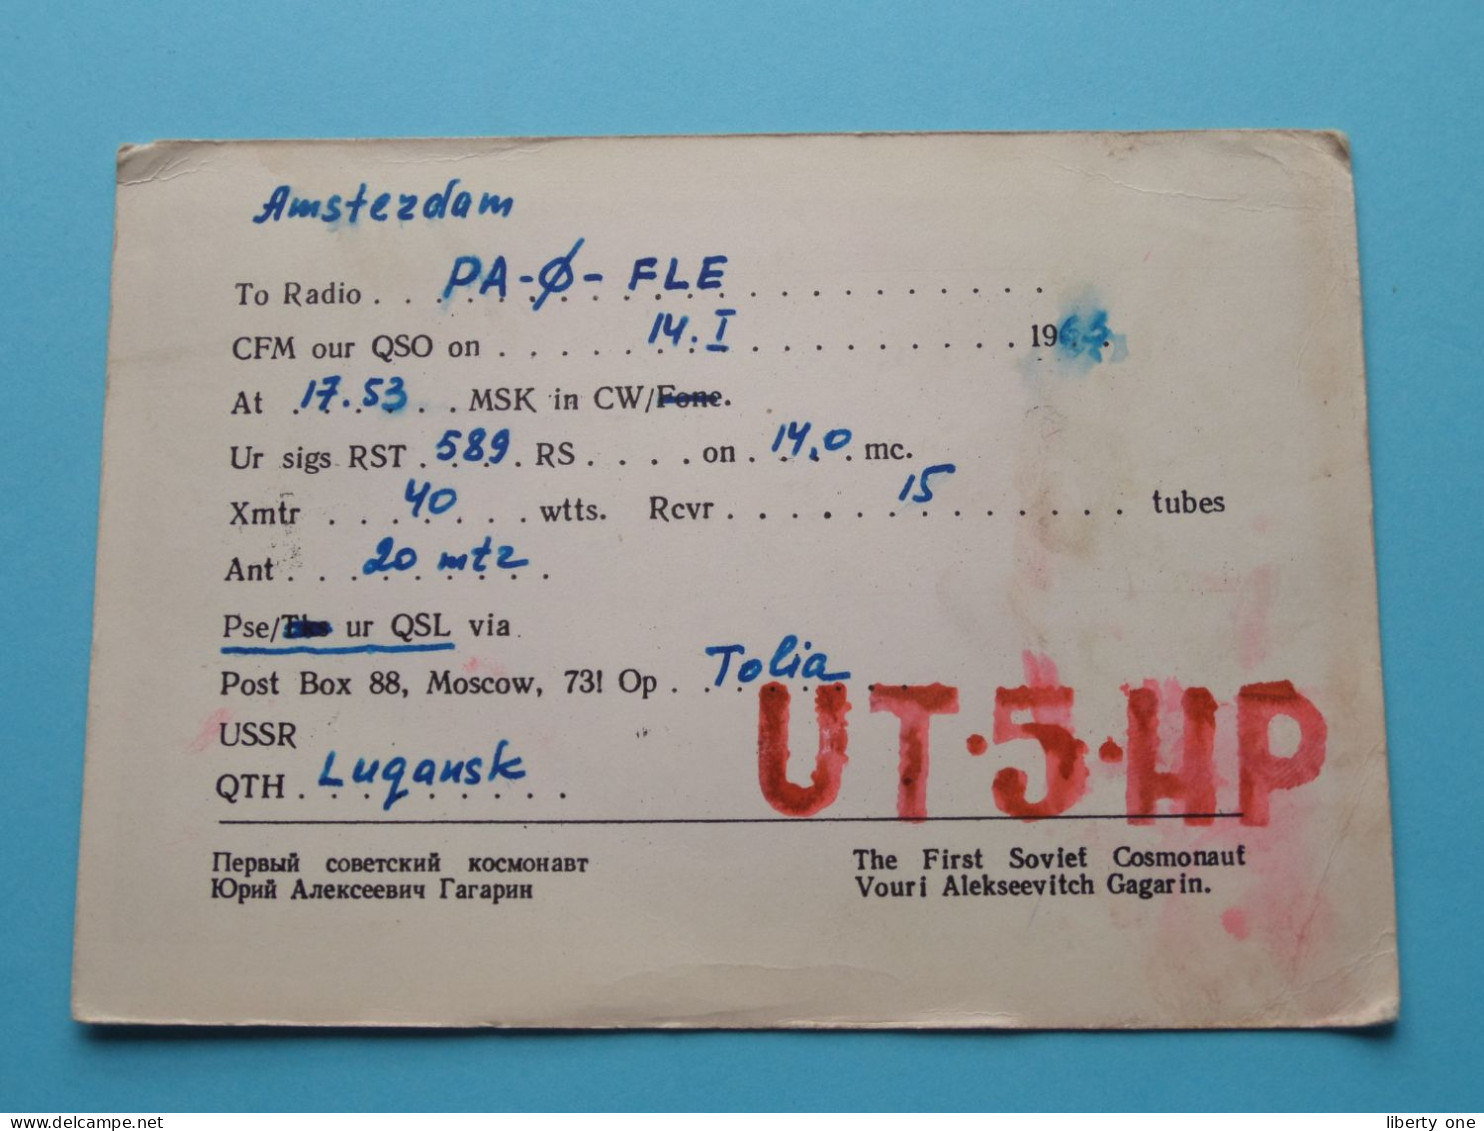 Amsterdam
To Radio . . . PA-Ø-FLE
CFM our QSO on . . . 14.I . . . 19
At 17.53 MSK in CW/Fone.
Ur sigs RST 589 RS . . . . on 14,0 mc.
Xmtr . . . 40 . . . wtts. Rcvr . . . 15 . . . tubes
Ant . . . 20 mtz . . .
Pse/Tks ur QSL via
Post Box 88, Moscow, 73! Op . . . Tolia
USSR
UT·5·HP
QTH . . . Lugansk . . .
Первый советский космонавт
Юрий Алексеевич Гагарин
The First Soviet Cosmonaut
Youri Alekseevitch Gagarin.
delcampe.net
liberty one